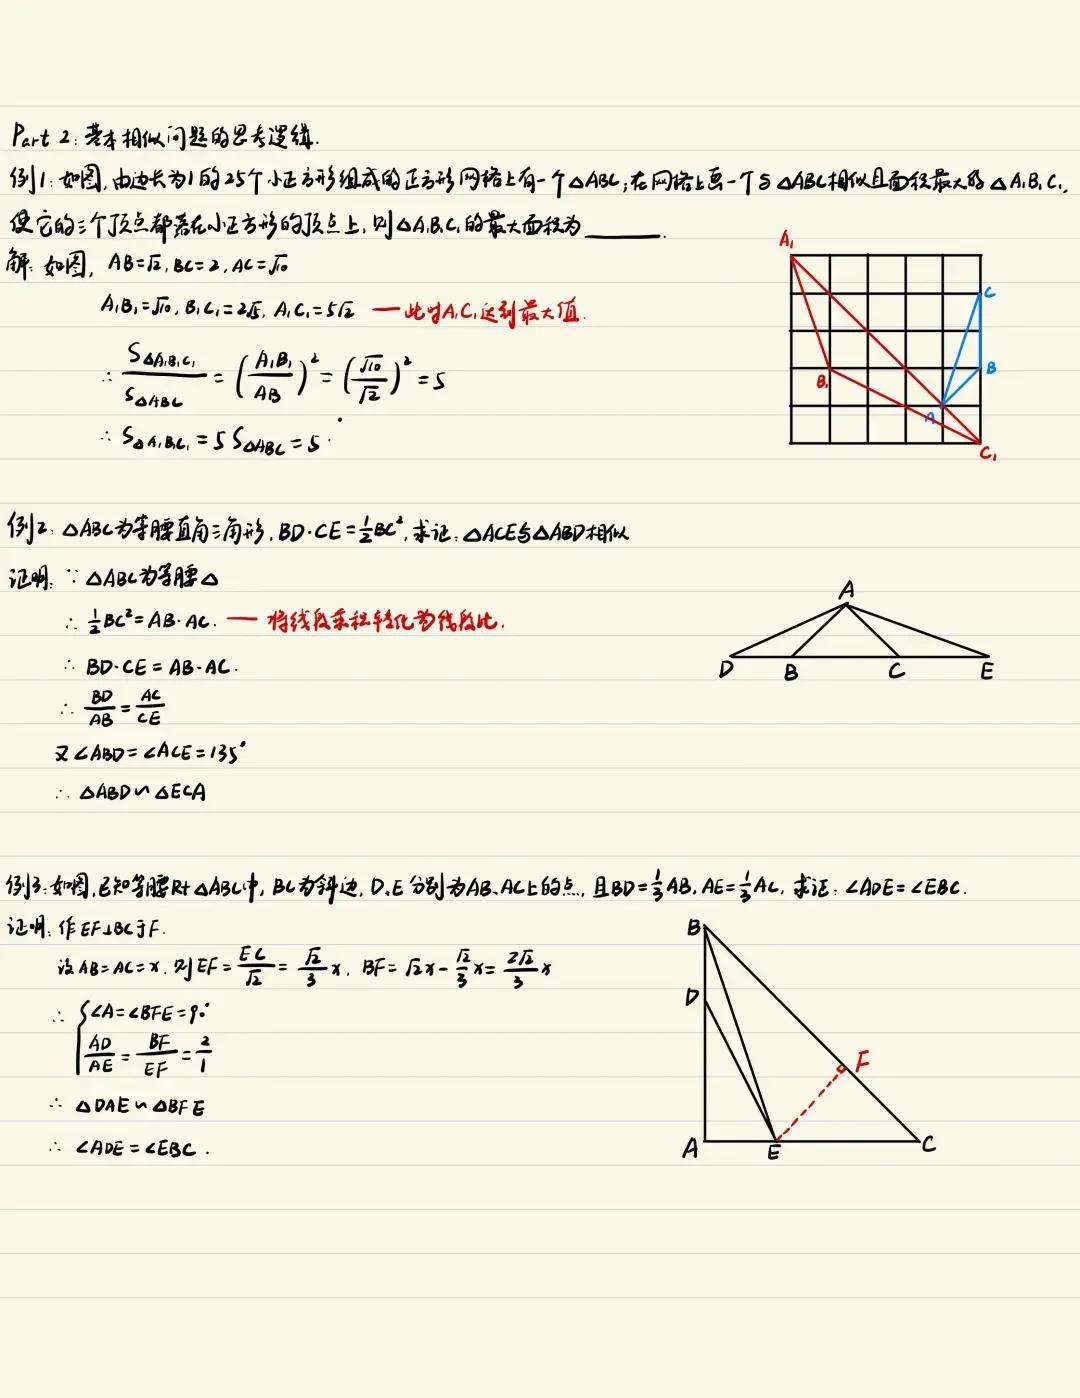 Part 2: 基本相似问题的思考逻辑.
例1: 如图, 由边长为1的25个小正方形组成的正方形网格上有一个△ABC; 在网格上画一个与△ABC相似且面积最大的△A₁B₁C₁,
使它的三个顶点都落在小正方形的顶点上, 则△A₁B₁C₁的最大面积为______.
解: 如图, AB=√2, BC=2, AC=√10
A₁B₁=√10, B₁C₁=2√5, A₁C₁=5√2 — 此时A₁C₁达到最大值.
∴ S△A₁B₁C₁/S△ABC = (A₁B₁/AB)² = (√10/√2)² = 5
∴ S△A₁B₁C₁ = 5 S△ABC = 5.
A₁
C
B
B₁
A
C₁
例2: △ABC为等腰直角三角形, BD·CE=½BC², 求证: △ACE与△ABD相似
证明: ∵ △ABC为等腰△
∴ ½BC²=AB·AC. — 将线段乘积转化为线段比.
∴ BD·CE=AB·AC.
∴ BD/AB = AC/CE
又∠ABD=∠ACE=135°
∴ △ABD∽△ECA
A
D B C E
例3: 如图, 已知等腰Rt△ABC中, BC为斜边, D、E分别为AB、AC上的点, 且BD=⅓AB, AE=⅓AC, 求证: ∠ADE=∠EBC.
证明: 作EF⊥BC于F.
设AB=AC=x, 则EF=EC/√2=√2/3 x, BF=√2x-√2/3 x=2√2/3 x
∴ {∠A=∠BFE=90°
AD/AE = BF/EF = 2/1
∴ △DAE∽△BFE
∴ ∠ADE=∠EBC.
B
D
F
A E C